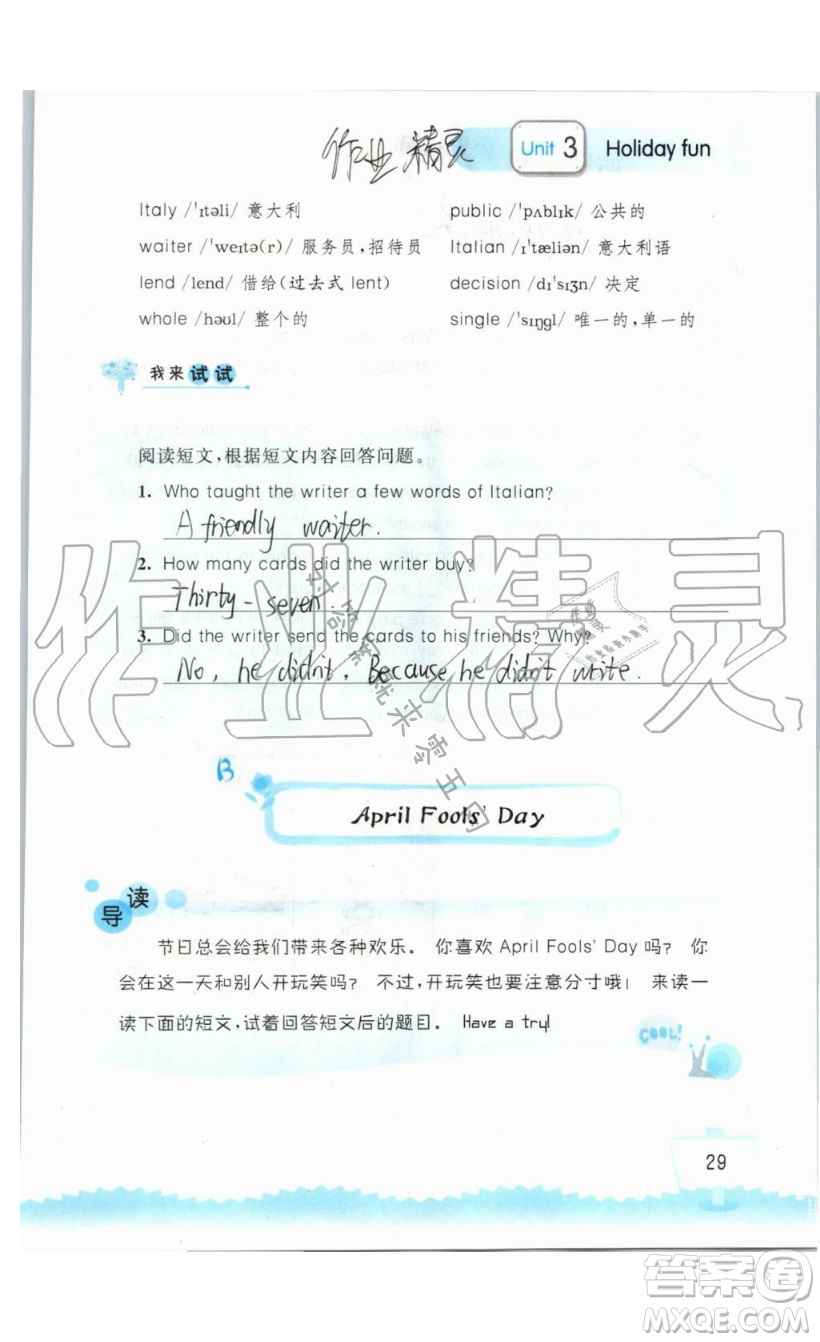 作业精灵
Unit 3 Holiday fun
Italy /ˈɪtəli/ 意大利
public /ˈpʌblɪk/ 公共的
waiter /ˈweɪtə(r)/ 服务员,招待员
Italian /ɪˈtæliən/ 意大利语
lend /lend/ 借给(过去式 lent)
decision /dɪˈsɪʒn/ 决定
whole /həʊl/ 整个的
single /ˈsɪŋgl/ 唯一的,单一的
我来试试
阅读短文,根据短文内容回答问题。
1. Who taught the writer a few words of Italian?
A friendly waiter.
2. How many cards did the writer buy?
Thirty-seven.
3. Did the writer send the cards to his friends? Why?
No, he didn't. Because he didn't write.
作业精灵
对答案就来零五网
B
April Fools' Day
导读
节日总会给我们带来各种欢乐。 你喜欢 April Fools' Day 吗? 你
会在这一天和别人开玩笑吗? 不过,开玩笑也要注意分寸哦! 来读一
读下面的短文,试着回答短文后的题目。 Have a try!
COOL!
29
答案卷
MXQE.COM